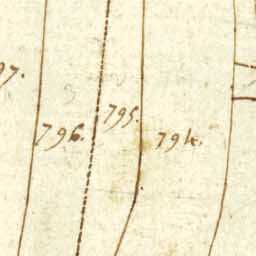 97.
796.
795.
794.